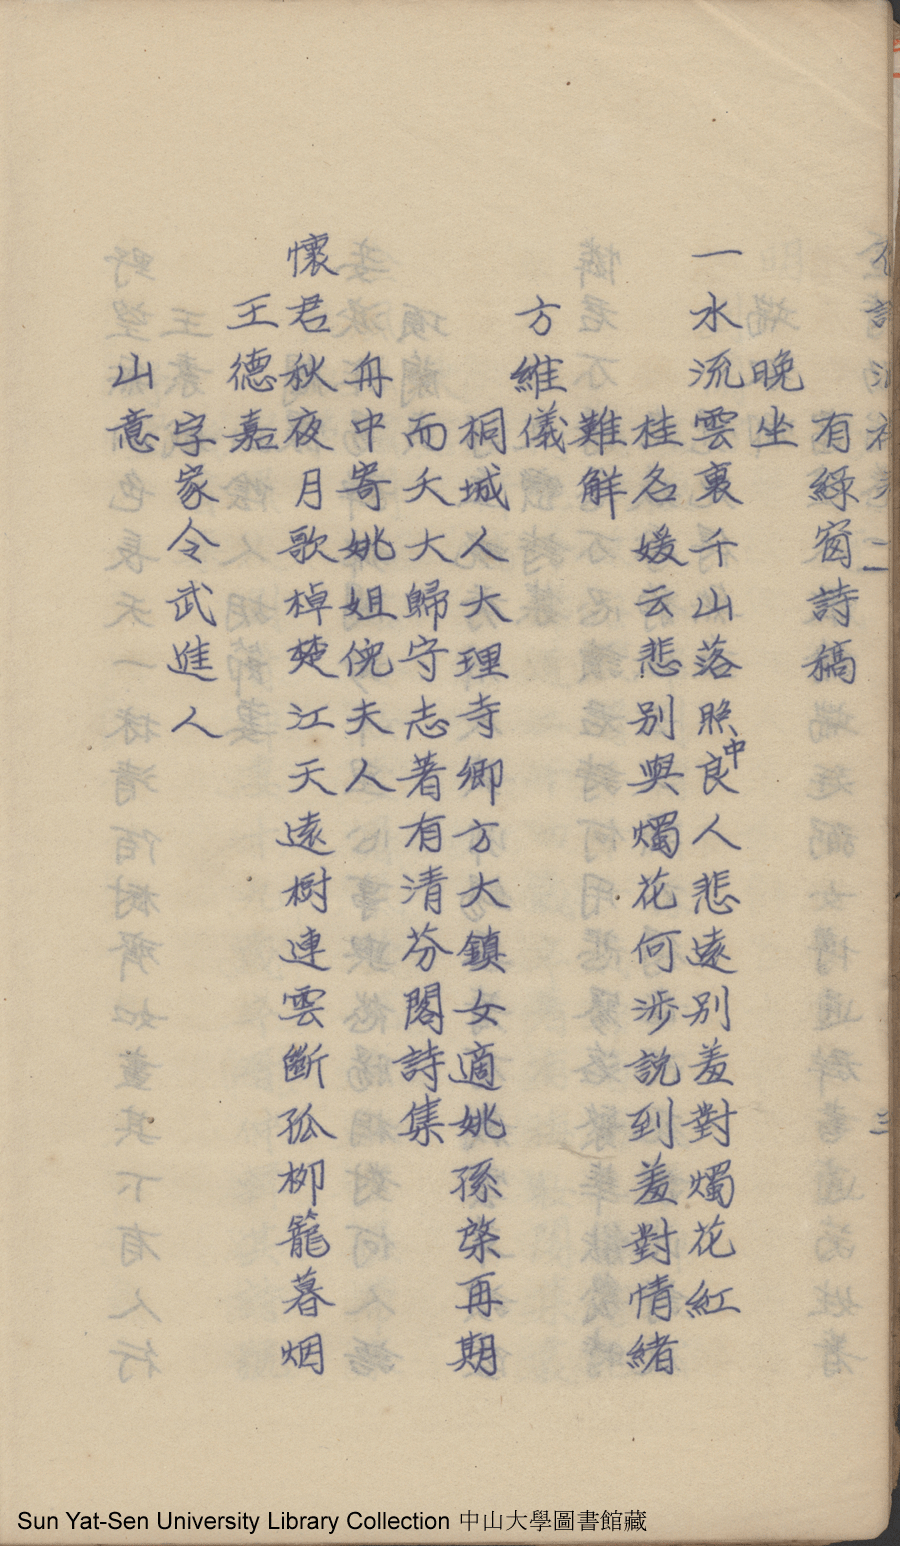 有綠窗詩稿
晚坐
一水流雲裏千山落照中良人悲遠別羞對燭花紅
桂名媛云悲別與燭花何涉說到羞對情緒
難解
方維儀
桐城人大理寺卿方大鎮女適姚孫棨再期
而夭大歸守志著有清芬閣詩集
舟中寄姚姐倪夫人
懷君秋夜月歌棹楚江天遠樹連雲斷孤柳籠暮烟
王德嘉
字家令武進人
山意
Sun Yat-Sen University Library Collection 中山大學圖書館藏